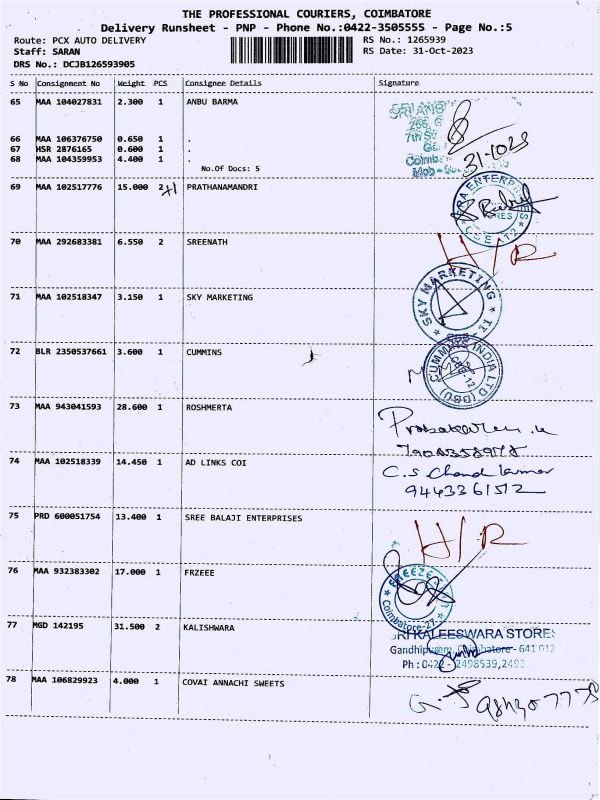 THE PROFESSIONAL COURIERS, COIMBATORE
Delivery Runsheet - PNP - Phone No.:0422-3505555 - Page No.:5
Route: PCX AUTO DELIVERY RS No.: 1265939
Staff: SARAN RS Date: 31-Oct-2023
DRS No.: DCJB126593905
S No Consignment No Weight PCS Consignee Details Signature
65 MAA 104027831 2.300 1 ANBU BARMA
66 MAA 106376750 0.650 1 .
67 HSR 2876165 0.600 1 .
68 MAA 104359953 4.400 1 .
No.Of Docs: 5
31-10-23
69 MAA 102517776 15.000 2 PRATHANAMANDRI
70 MAA 292683381 6.550 2 SREENATH H/R
71 MAA 102518347 3.150 1 SKY MARKETING
SKY MARKETING
72 BLR 2350537661 3.600 1 CUMMINS
CUMMINS INDIA LTD (DBU)
73 MAA 943041593 28.600 1 ROSHMERTA
74 MAA 102518339 14.450 1 AD LINKS COI
9443361512
75 PRD 600051754 13.400 1 SREE BALAJI ENTERPRISES H/R
76 MAA 932383302 17.000 1 FRZEEE
Coimbatore-27
77 MGD 142195 31.500 2 KALISHWARA
SRI KALEESWARA STORES
Gandhipuram, Coimbatore - 641 012
Ph : 0422 - 2498539,249
78 MAA 106829923 4.000 1 COVAI ANNACHI SWEETS